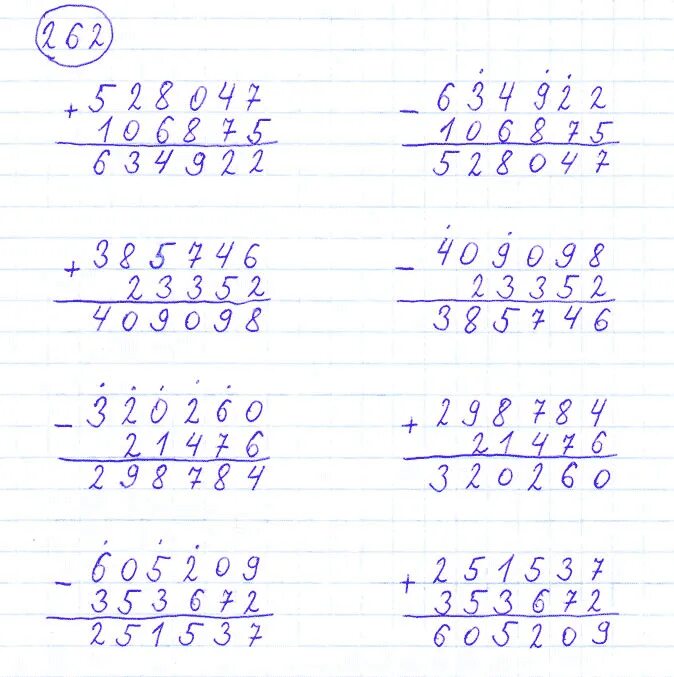 262
+ 528047
106875
634922
- 634922
106875
528047
+ 385746
23352
409098
- 409098
23352
385746
- 320260
21476
298784
+ 298784
21476
320260
- 605209
353672
251537
+ 251537
353672
605209